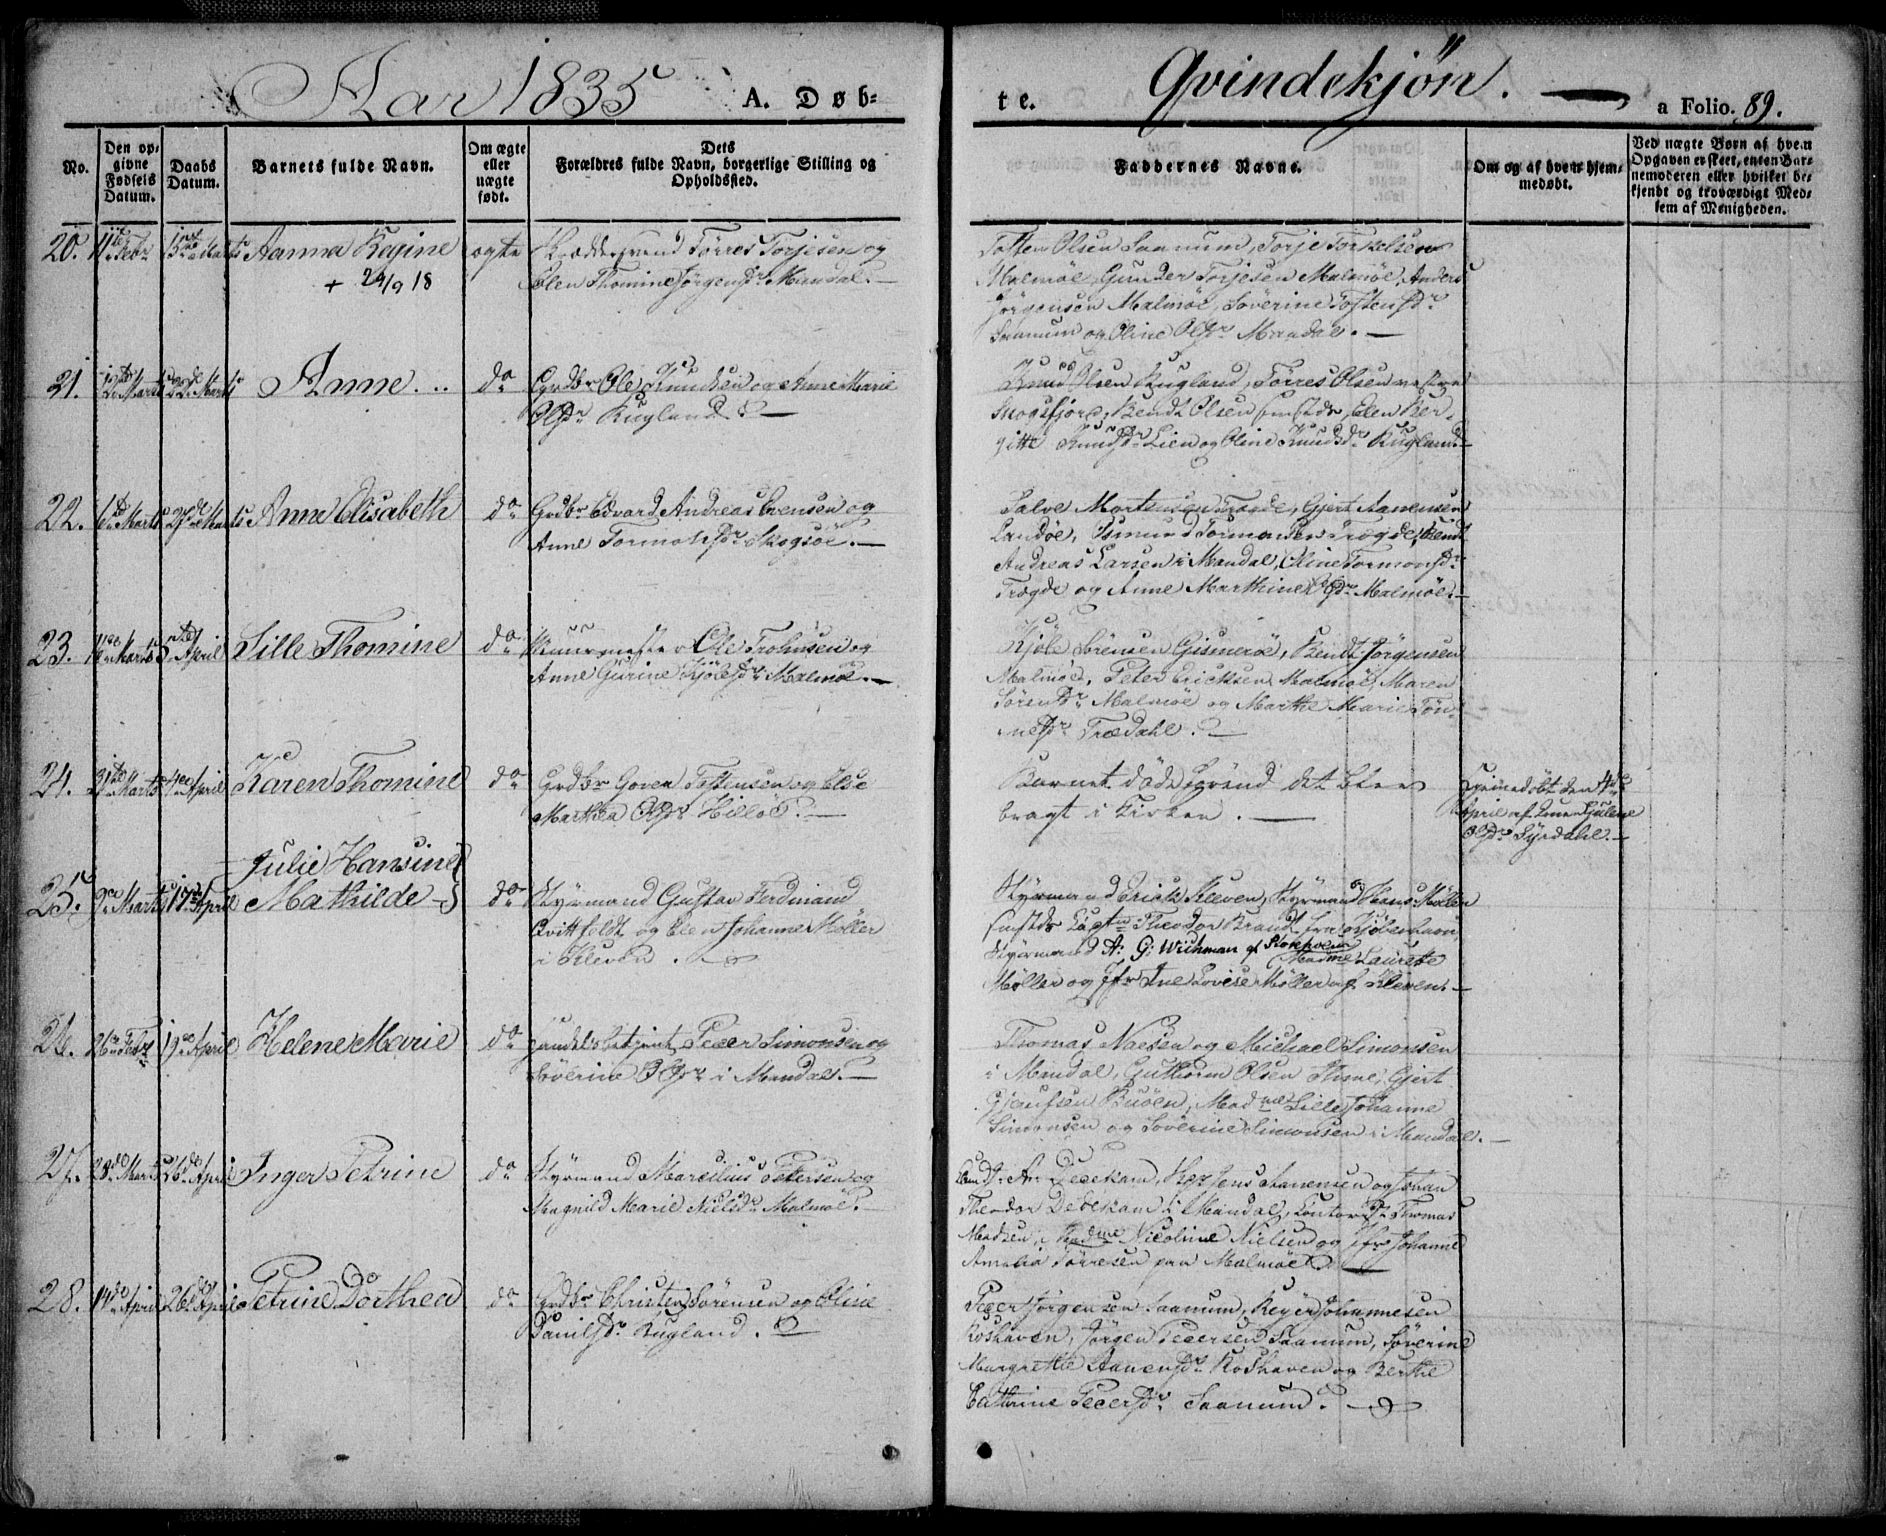 Aar 1835 A. Døb-
te. Qvindekjøn. a Folio. 89.
No. Den op-
givne
Fødsels
Datum. Daabs
Datum. Barnets fulde Navn. Om ægte
eller
uægte
født. Dets
Forældres fulde Navn, borgerlige Stilling og
Opholdssted.
Faddernes Navne. Om og af hvem hjem-
medøbt. Ved uægte Børn af hvem
Opgaven er skeet, enten Bar-
nemoderen eller hvilket be-
kjendt og troværdigt Med-
lem af Menigheden.
20. 11te Febr 15de Marts Aanna Regine ægte Skrædersvend Tørres Torjesen og
+ 24/9 18 Elen Thomine Jørgensdr Mandal.
Tosten Olsen Saanum, Torje Torkelsen
Malmöe, Gunder Torjesen Malmöe, Anders
Jörgensen Malmöe, Severine Tostensdr
Saanum og Oline Olsdr Mandal.
21. 12te Marts 22de Marts Anne do Grdbr Ole Knudsen og Anne Marie
Olsdr Rugland.
Knud Olsen Rugland, Törres Olsen
Skogsfjord, Bendt Olsen sammestds, Elen Ber-
gitte Knudsdr Lien og Oline Knudsdr Rugland
22. 6te Marts 29de Marts Anna Elisabeth do Grdbr Edvard Andreas Evensen og
Anne Tormodsdr Skogsöe.
Salve Mortensen Trogde, Gjert Aanensen
Landöe, Asmund Tormodsen Trogde, Bendt
Andreas Larsen i Mandal, Eline Tormodsdr
Trogde og Anne Marthine Olsdr Malmöe.
23. 16de Marts 5te April Sille Thomine do Muurmester Ole Trohnsen og
Anne Gurine Kjölesdr Malmöe.
Kjöle Sörensen Gismeröe, Bendt Jörgensen
Malmöe, Peter Ericksen Malmöe, Maren
Sörensdr Malmöe og Marthe Marie Tön-
nesdr Trædahl.
24. 31te Marts 4de April Karen Thomine do Grdbr Goven Tostensen og Else
Marthea Olsdr Hillöe.
Barnet döde förend det blev
bragt i Kirken.
Hjemmedöbt den 4de
April af
Olsdr Syrdahl.
25. 9de Marts 17de April Julie Hansine
Mathilde do Styrmand Gustav Ferdinand
Qvittfeldt og Elen Johanne Möller
i Kleven.
Styrmand Erick Kleven, Styrmand Hans Möller
sammestds, Theodor Brandt fra Kjöbenhavn,
Styrmand A: G: Wichman af Stokholm, Madme Laurette
Möller og Jfr Ane Lovise Möller af Kleven.
26. 26de Febr 19de April Helene Marie do Handelsbetjent Peder Simonsen og
Söverine Olsdr i Mandal.
Thomas Naesen og Michael Simonsen
i Mandal, Guthorm Olsen Thime, Gjert
Buöen, Madme Sille Johanne
Simonsen og Söverine Simonsen i Mandal.
27. 28de Marts 26de April Inger Petrine do Styrmand Marcelius Petersen og
Magnild Marie Nielsdr Malmöe.
A: Dedekam, Aanensen og Johan
Theodor Dedekam i Mandal, Contorist Thomas
Madsen, Madme Nicoline Nielsen og Jfr Johanne
Amalia Törresen paa Malmöe.
28. 14de April 26de April Petrine Dorthea do Grdbr Christen Sörensen og Oline
Danielsdr Rugland.
Peder Jörgensen Saanum, Reyer Johannesen
Roshaven, Jörgen Pedersen Saanum, Söverine
Margrethe Aanensdr Roshaven og Berthe
Cathrine Pedersdr Saanum.